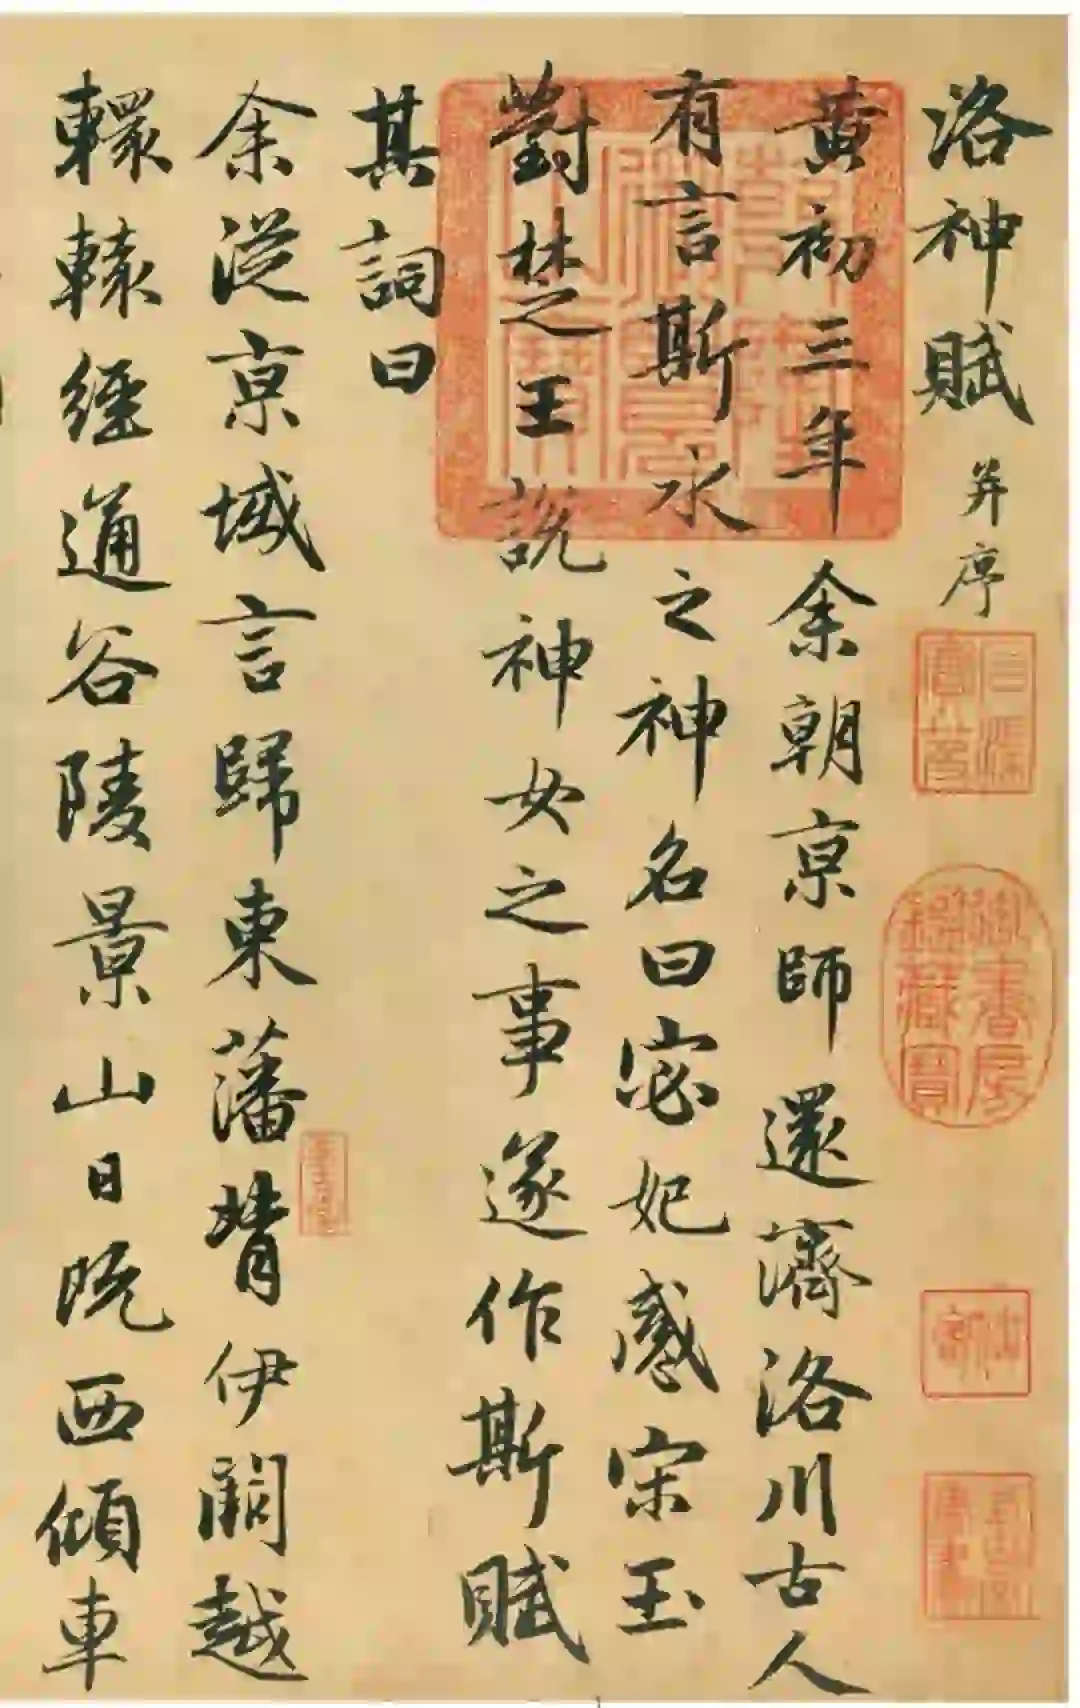 洛神賦 并序
黄初三年余朝亰師還濟洛川古人
有言斯水之神名曰宓妃感宋玉
對楚王說神女之事遂作斯賦
其詞曰
余從亰域言歸東藩背伊闕越
轘轅經通谷陵景山日既西傾車
御書房鑑藏寶